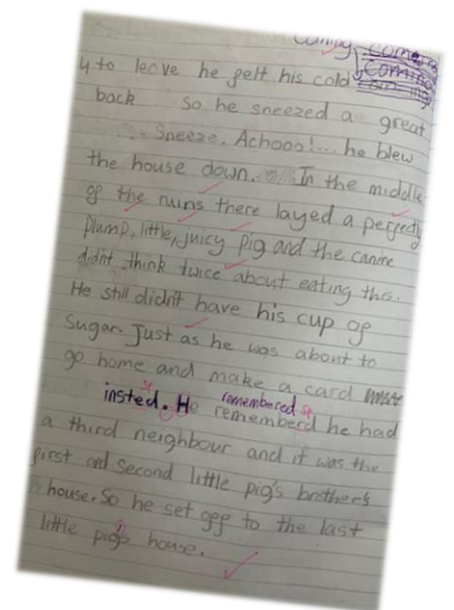 coming coming
Coming
y to leave he felt his cold
back so he sneezed a great
Sneeze. Achooo!... he blew
the house down. In the middle
of the ruins there layed a perfectly
plump, little, juicy pig and the canine
didn't think twice about eating this.
He still didn't have his cup of
Sugar. Just as he was about to
go home and make a card
insted. He rememberd remembered he had
a third neighbour and it was the
first and second little pig's brother's
house. So he set off to the last
little pig's house.